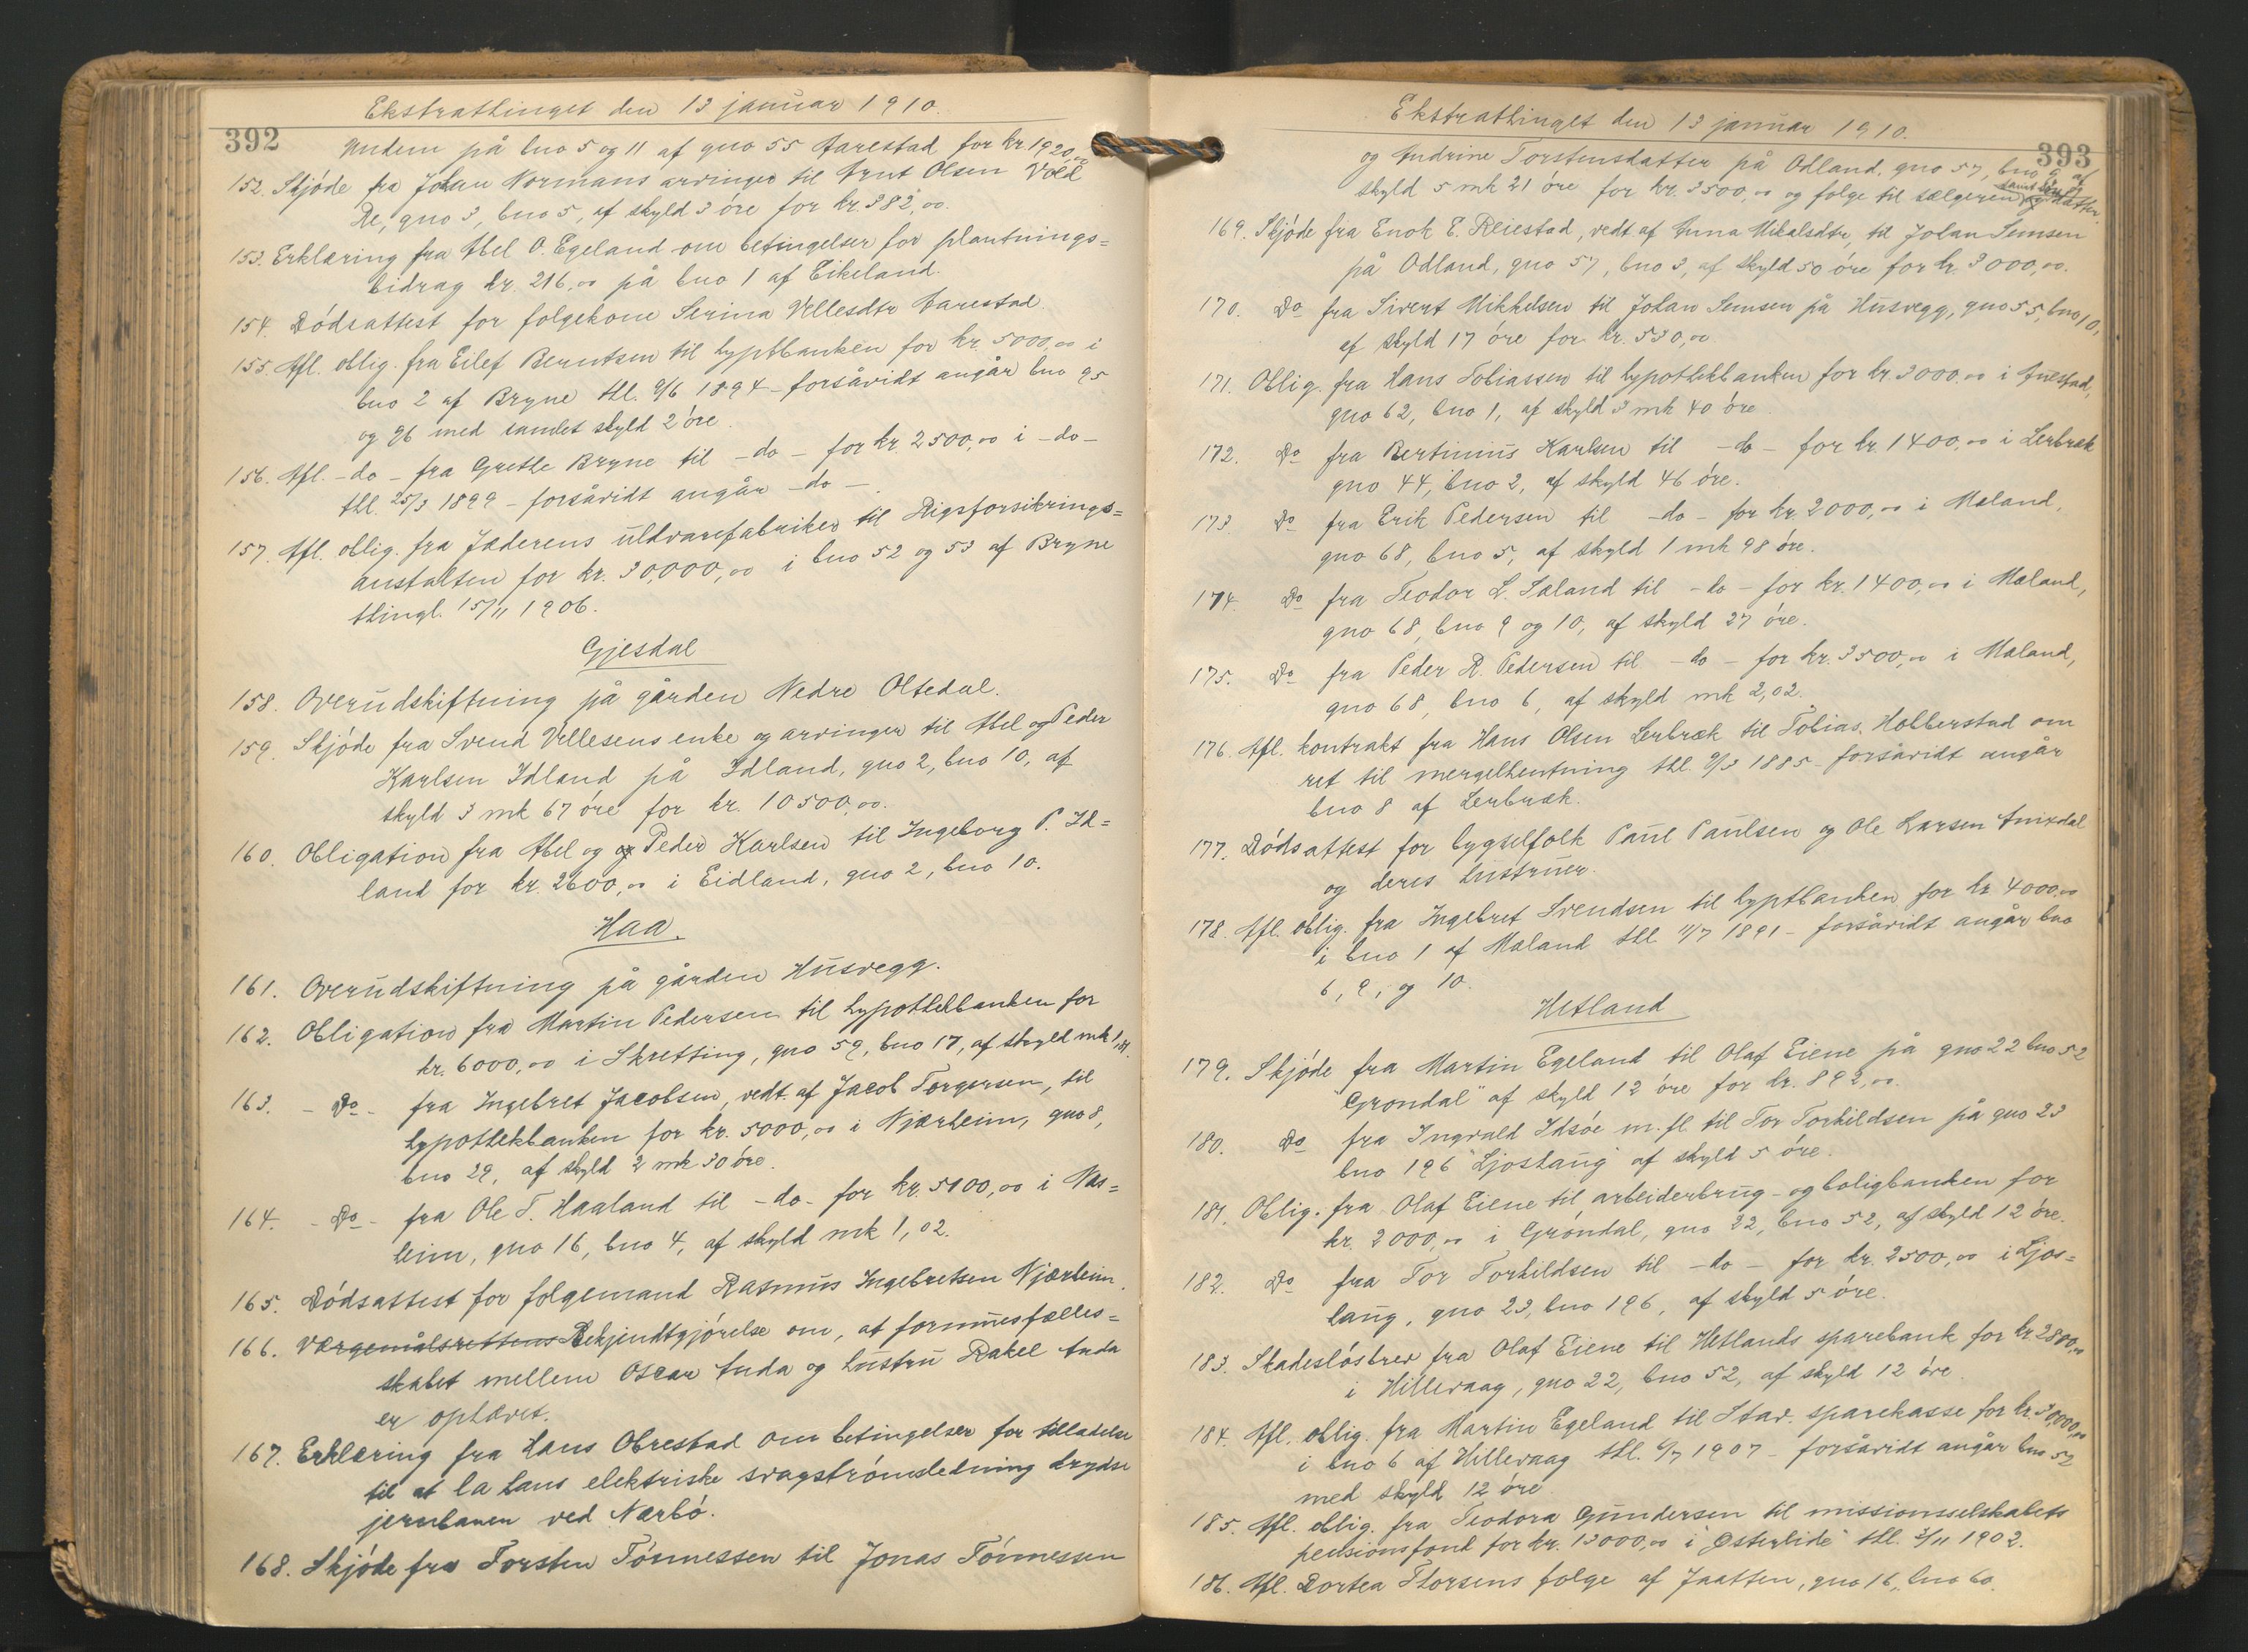 Ekstrathinget den 13 januar 1910.
392
Undem på bno 5 og 11 af gno 55 Aarestad for kr. 1920,00
152. Skjóde fra Johan Normans arvinger til Arnt Olsen Vold
Re, gno 3, bno 5, af skyld 3 óre for kr. 382,00.
153. Erklæring fra Abel O. Egeland om betingelser for plantnings=
bidrag kr. 216,00 på bno 1 af Eikeland.
154. Dódsattest for folgekone Serina Vellesdtr Aarestad.
155. Afl. oblig. fra Eilef Berntsen til hyptbanken for kr. 5000,00 i
bno 2 af Bryne thl. 9/6 1894 – forsåvidt angår bno 95
og 96 med samlet skyld 2 óre.
156. Afl. – do – fra Grethe Bryne til – do – for kr. 2500,00 i – do –
thl. 25/3 1899 – forsåvidt angår – do – .
157. Afl. oblig. fra Jæderens uldvarefabriker til Rigsforsikrings=
anstalten for kr. 30,000,00 i bno 52 og 53 af Bryne
thingl. 15/11 1906.
Gjesdal
158. Overudskiftning på gården Nedre Oltedal.
159. Skjóde fra Svend Vellesens enke og arvinger til Abel og Peder
Karlsen Idland på Idland, gno 2, bno 10, af
skyld 3 mk 67 óre for kr. 10500,00.
160. Obligation fra Abel og og Peder Karlsen til Ingeborg P. Id=
land for kr. 2600,00 i Eidland, gno 2, bno 10.
Haa.
161. Overudskiftning på gården Husvegg.
162. Obligation fra Martin Pedersen til hypothekbanken for
kr. 6000,00 i Skretting, gno 59, bno 17, af skyld mk
163. – Do – fra Ingebret Jacobsen, vedt. af Jacob Torgersen, til
hypothekbanken for kr. 5000,00 i Njærheim, gno 8,
bno 29, af skyld 2 mk 30 óre.
164. – Do – fra Ole T. Haaland til – do – for kr. 5100,00 i Nas=
heim, gno 16, bno 4, af skyld mk 1,02.
165. Dódsattest for folgemand Rasmus Ingebretsen Njærheim.
166. Værgemålsrettens Bekjendtgjórelse om, at formuesfælles=
skabet mellem Oscar Anda og hustru Rakel Anda
er ophævet.
167. Erklæring fra Hans Obrestad om betingelser for tilladelse
til at la hans elektriske svagstrómsledning krydse
jernbanen ved Nærbó.
168. Skjóde fra Torsten Tónnessen til Jonas Tónnessen
Ekstrathinget den 13 januar 1910.
393
og Andrine Torstensdatter på Odland, gno 57, bno 9, af
skyld 5 mk 21 óre for kr. 3500,00 og folge til sælgeren og datter.
169. Skjóde fra Enok E. Reiestad, vedt af Anna Mikalsdtr, til Johan Semsen
på Odland, gno 57, bno 3, af skyld 50 óre for kr. 3000,00.
170. Do fra Sivert Mikkelsen til Johan Semsen på Husvegg, gno 55, bno 10,
af skyld 17 óre for kr. 530,00
171. Oblig. fra Hans Tobiassen til hypothekbanken for kr. 3000,00 i Anestad,
gno 62, bno 1, af skyld 3 mk 40 óre
172. Do fra Bertinius Karlsen til – do – for kr. 1400,00 i Lerbræk
gno 44, bno 2, af skyld 46 óre.
173 Do fra Erik Pedersen til – do – for kr. 2000,00 i Mæland,
gno 68, bno 5, af skyld 1 mk 98 óre.
174. Do fra Teodor L. Sæland til – do – for kr. 1400,00 i Mæland,
gno 68, bno 9 og 10, af skyld 27 óre.
175. Do fra Peder R. Pedersen til – do – for kr. 3500,00 i Mæland,
gno 68, bno 6, af skyld mk 2,02.
176. Afl. kontrakt fra Hans Olsen Lerbræk til Tobias Hobberstad om
ret til mergelhentning thl. 9/3 1885 – forsåvidt angår
bno 8 af Lerbræk.
177. Dódsattest for bygselfolk Paul Paulsen og Ole Larsen Anixdal
og deres hustruer.
178. Afl. oblig. fra Ingebret Svendsen til hyptbanken for kr 4000,00
i bno 1 af Mæland thl. 11/7 1891 – forsåvidt angår bno
6, 9, og 10.
Hetland
179. Skjóde fra Martin Egeland til Olaf Eiene på gno 22 bno 52
"Grondal" af skyld 12 óre for kr. 892,00.
180. Do fra Ingvald Idsóe m. fl. til Tor Torkildsen på gno 23
bno 196 "Ljoshaug" af skyld 5 óre.
181. Oblig. fra Olaf Eiene til arbeiderbrug- og boligbanken for
kr. 2000,00 i Grondal, gno 22, bno 52, af skyld 12 óre.
182. Do fra Tor Torkildsen til – do – for kr. 2500,00 i Ljos=
haug, gno 23, bno 196, af skyld 5 óre.
183. Skadeslósbrev fra Olaf Eiene til Hetlands sparebank for kr 2800,00
i Hillevaag, gno 22, bno 52, af skyld 12 óre.
184. Afl. oblig. fra Martin Egeland til Stav. sparekasse for kr. 30000,00
i bno 6 af Hillevaag thl. 6/7 1907 – forsåvidt angår bno 52
med skyld 12 óre.
185. Afl. oblig. fra Teodora Gundersen til missionsselskabets
pensionsfond for kr. 13000,00 i "Østerlide" thl. 3/11 1902.
186. Afl. Dortea Thorsens folge af Jaatten, gno 16, bno 60.